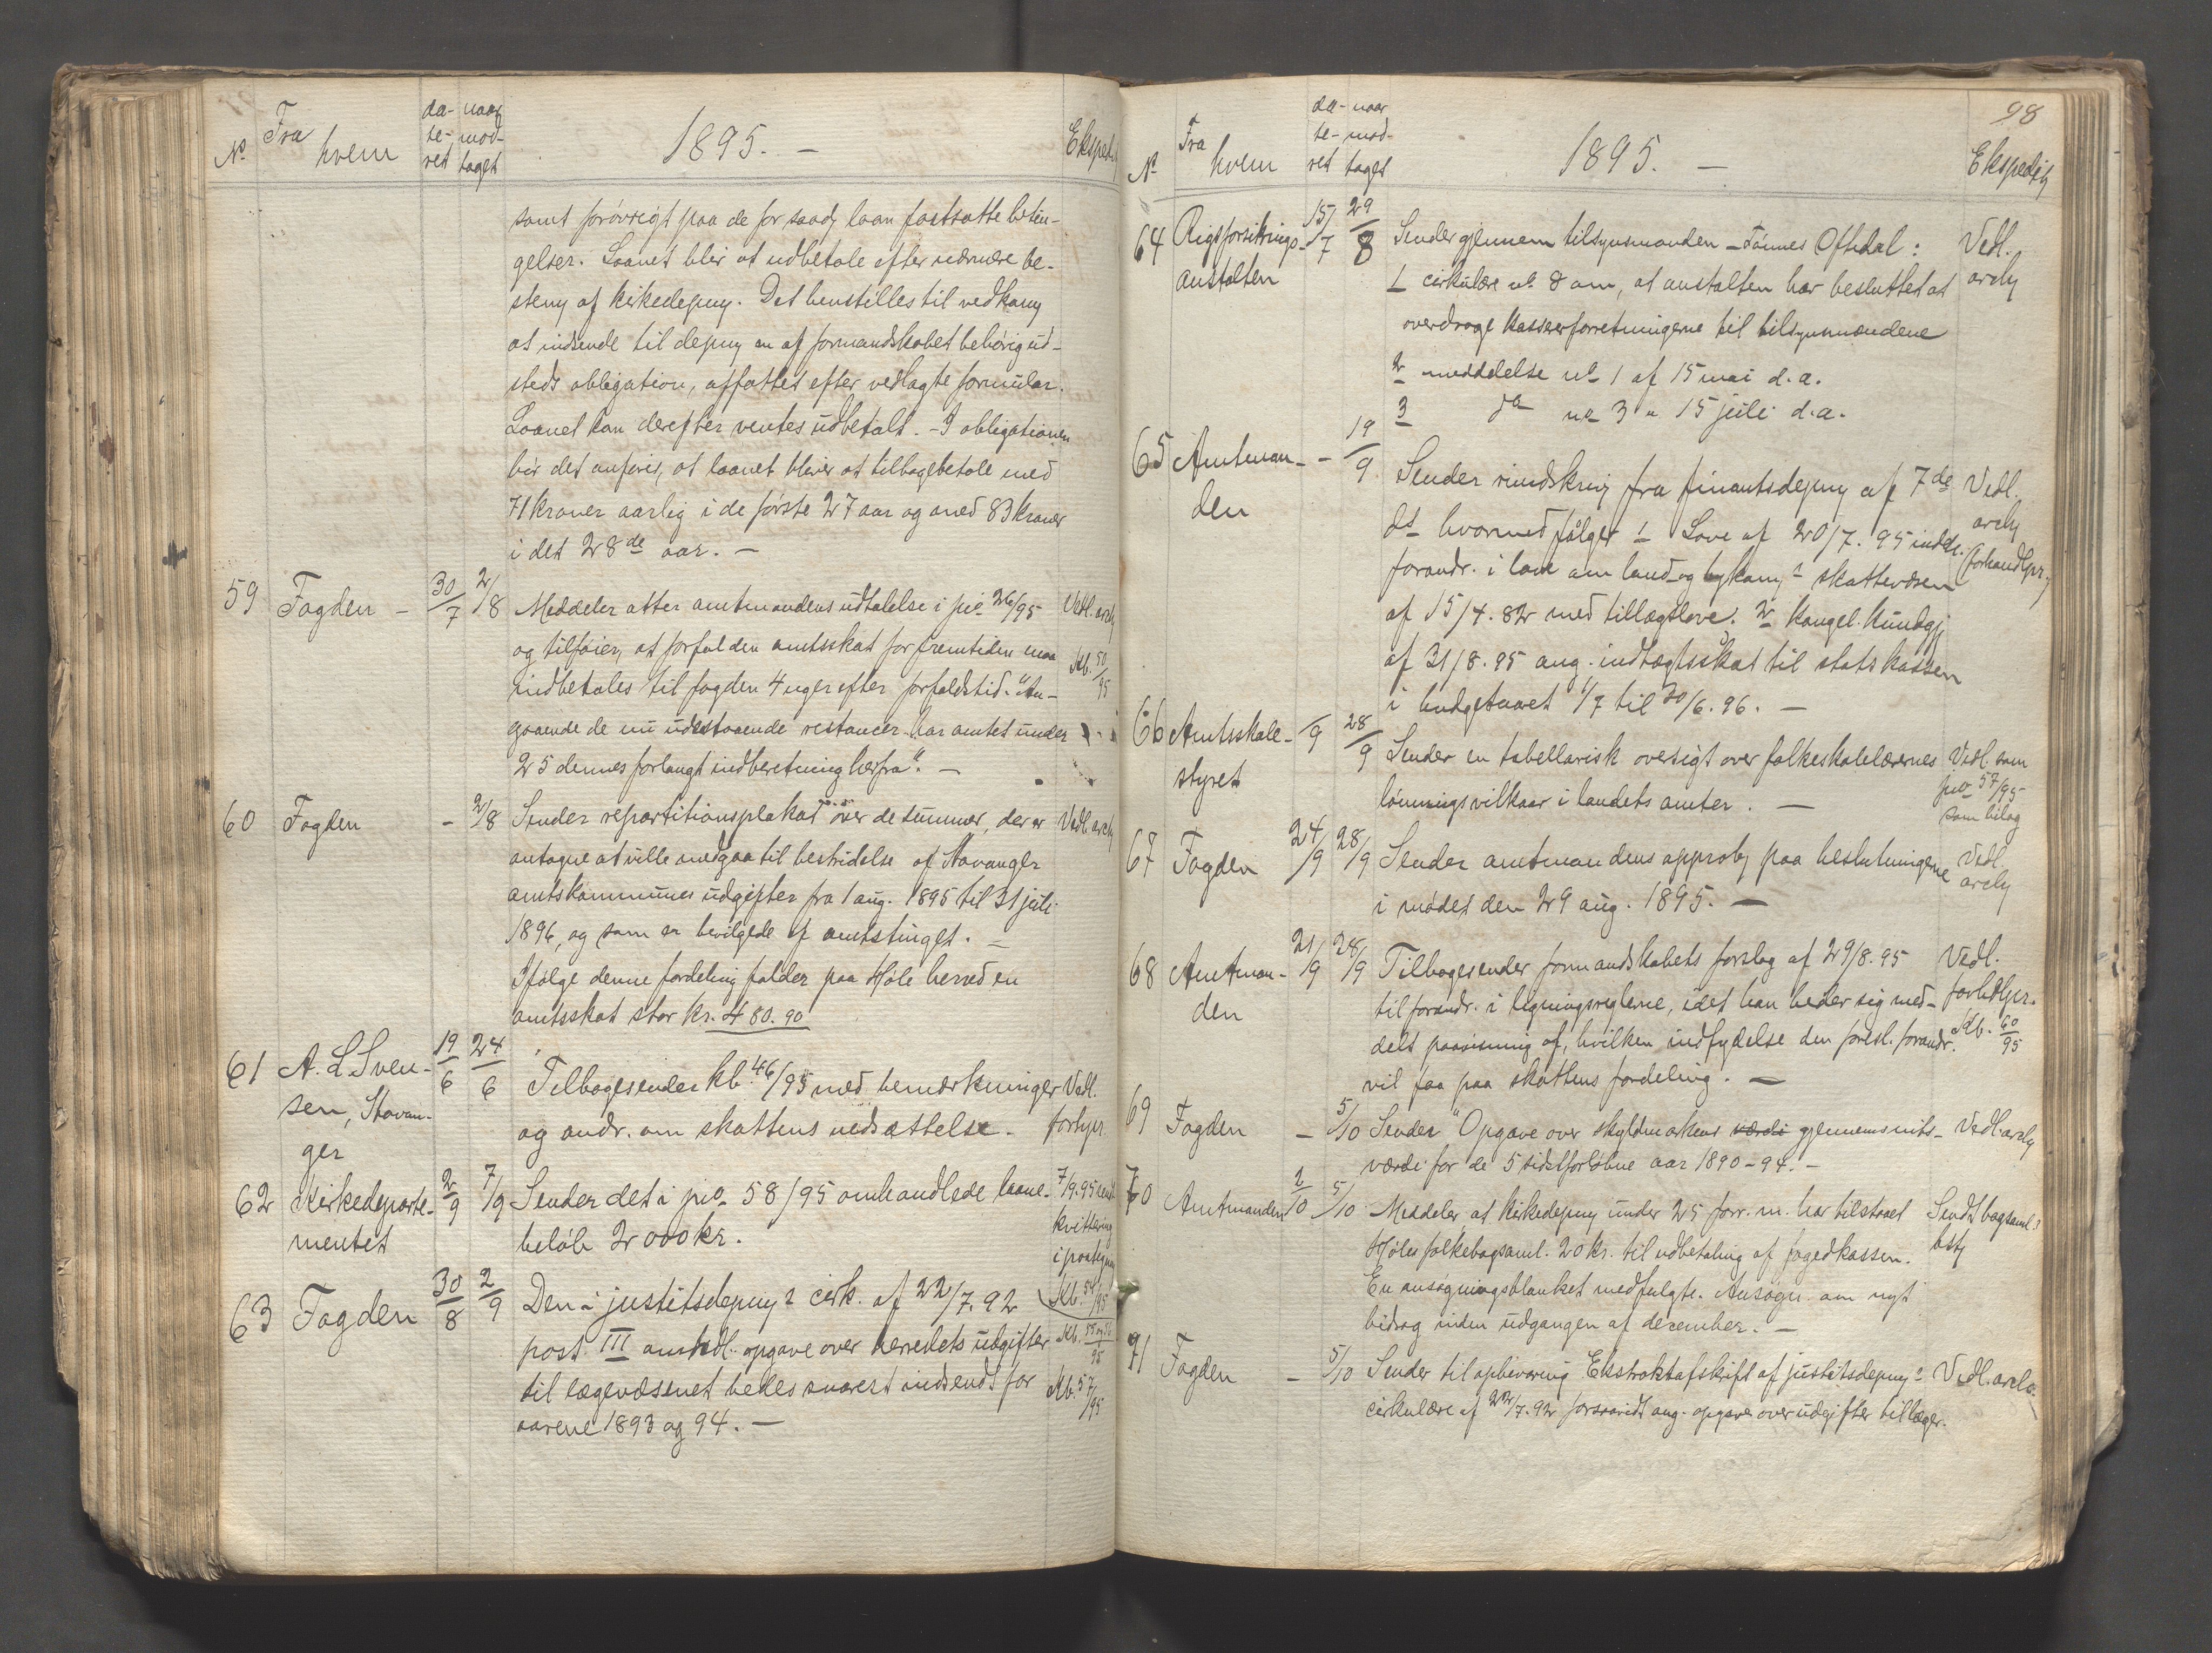 No Fra hvem da-te-ret naar mod-taget 1895. — Eksped.
samt forøvrigt paa de for saadₓ laan fastsatte betin-
gelser. Laanet blir at udbetale efter nærmere be-
stemₓ af kirkedepₓ. Det henstilles til vedkomₓ
at indsende til depₓ en af formandskabet behørig ud-
steds obligation, affattet efter vedlagte formular.
Laanet kan derefter ventes udbetalt. - I obligationen
bør det anføres, at laanet bliver at tilbagebetale med
71 kroner aarlig i de første 27 aar og med 83 kroner
i det 28de aar. —
59 Fogden - 30/7 2/8 Meddeler atter amtmandens udtalelse i jno 26/95 Vedl. arch
og tilføier, at forfalden amtsskat for fremtiden maa Kb. 50/95
indbetales til fogden 4 uger efter forfaldstid. "An-
gaaende de nu udestaaende restancer har amtet under
25 dennes forlangt indberetning herfra". —
60 Fogden - 2/8 Sender repartitionsplakat over de summer, der er Vedl. arch
antagne at ville medgaa til bestridelse af Stavanger
amtskommunes udgifter fra 1 aug. 1895 til 31 juli
1896, og som er bevilgede af amtstinget. —
Ifølge denne fordeling falder paa Høle herred en
amtsskat stor kr. 480.90
61 A. L. Sven- 19/6 24/6 Tilbagesender kb. 46/95 med bemærkninger Vedl.
sen, Stavan- og andr. om skattens nedsættelse. forhpr.
ger
62 Kirkedeparte- 2/9 7/9 Sender det i jno 58/95 omhandlede laane- 7/9.95 send
mentet beløb 2000 kr. kvittering
i paategn
63 Fogden 30/8 2/9 Den i justitsdepₓs cirk. af 22/7.92 Kb. 54/95
post III omhdl. opgave over herredets udgifter Kb.
til lægevæsenet bedes snarest indsendt for Kb. 57/95
aarene 1893 og 94. —
98
No Fra hvem da-te-ret naar mod-taget 1895. — Ekspedit
64 Rigsforsikrings- 15/7 29/8 Sender gjennem tilsynsmanden - Tønnes Oftedal: Vedl.
anstalten 1 cirkulære no 8 om, at anstalten har besluttet at arch
overdrage kassererforretningerne til tilsynsmændene
2 meddelelse no 1 af 15 mai d.a.
3 do no 3 " 15 juli d.a.
65 Amtman- - 19/9 Sender rundskriv fra finantsdepₓ af 7de Vedl.
den ds hvormed følger 1 Love af 20/7.95 indeh. arch
forandr. i love om land og bykomₓs skattevæsen forhandlpr.
af 15/4.82 med tillægslove. 2 Kongel. Kundgj
af 31/8.95 ang. indtægtsskat til statskassen
i budgetaaret 1/7 til 30/6.96. —
66 Amtsskole- /9 28/9 Sender en tabellarisk oversigt over folkeskolelærernes Vedl. som
styret lønningsvilkaar i landets amter. — jno 57/95
som bilag
67 Fogden 24/9 28/9 Sender amtmandens approbₓ paa beslutningerne Vedl.
i mødet den 29 aug. 1895. — arch
68 Amtman- 21/9 28/9 Tilbagesender formandskabets forslag af 29/8.95 Vedl.
den til forandr. i ligningsreglerne, idet han beder sig med- forhdlpr.
delt paavisning af, hvilken indflydelse den foresl. forandr. Kb. 60/95
vil faa paa skattens fordeling. —
69 Fogden - 5/10 Sender "Opgave over skyldmarkens værdi gjennemsnits- Vedl. arch
værdi for de 5 sidstforløbne aar 1890-94. —
70 Amtmanden 2/10 5/10 Meddeler, at kirkedepₓ under 25 forr. m. har tilstaaet Sendt bogsaml.s
Høles folkebogsaml. 20 kr. til udbetaling af fogedkassen. bsty
En ansøgningsblanket medfulgte. Ansøgn. om nyt
bidrag inden udgangen af december. —
71 Fogden - 5/10 Sender til opbevaring Ekstraktafskrift af justitsdepₓs Vedl. arch.
cirkulære af 22/7.92 forsaavidt ang. opgave over udgifter til læger.